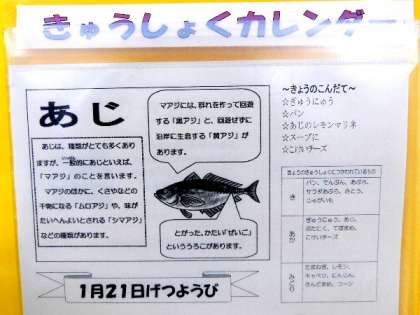 きゅうしょくカレンダー
あじ
あじは、種類がとても多くあり
ますが、一般的にあじといえば、
「マアジ」のことを言います。
マアジのほかに、くさやなどの
干物になる「ムロアジ」や、味が
たいへんよいとされる「シマアジ」
などの種類があります。
マアジには、群れを作って回遊
する「黒アジ」と、回遊せずに
沿岸に生息する「黄アジ」が
あります。
とがった、かたい「ぜいご」
といううろこがあります。
1月21日げつようび
～きょうのこんだて～
☆ぎゅうにゅう
☆パン
☆あじのレモンマリネ
☆スープに
☆こけいチーズ
きょうのきゅうしょくにつかわれているもの
き
パン、でんぷん、あぶら、
サラダあぶら、さとう、
じゃがいも
あか
ぎゅうにゅう、あじ、
とりにく、
こけいチーズ
みどり
たまねぎ、レモン、
キャベツ、にんじん、
コーン